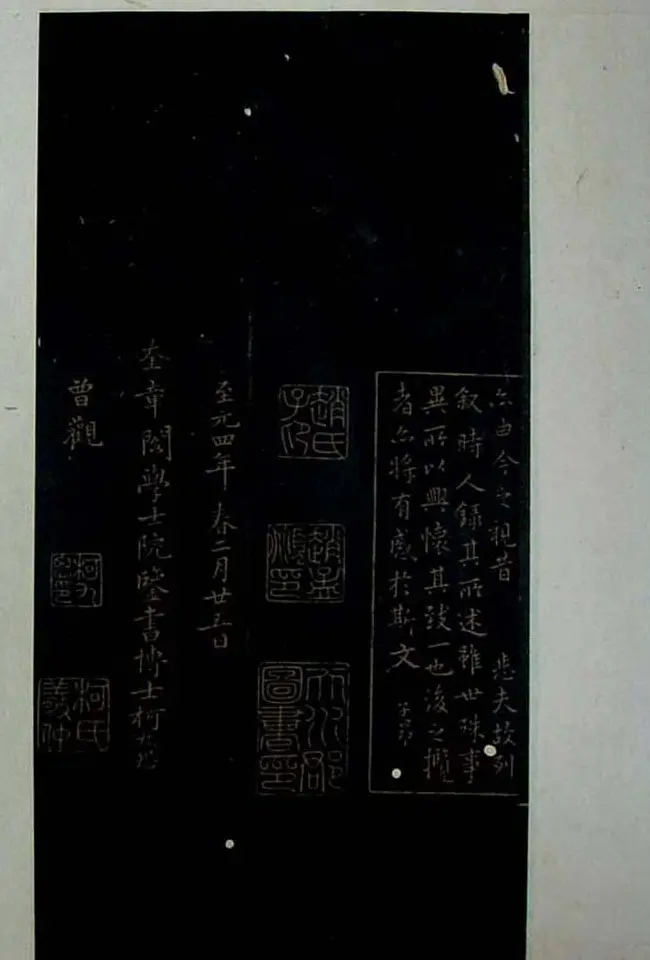 亦由今之視昔 悲夫故列
叙時人錄其所述雖世殊事
異所以興懷其致一也後之攬
者亦將有感於斯文 子昂
趙氏子昂
趙孟頫印
天水郡圖書印
至元四年春二月廿五日
奎章閣學士院鑒書博士柯九思
曾觀
柯九思印
柯氏敬仲